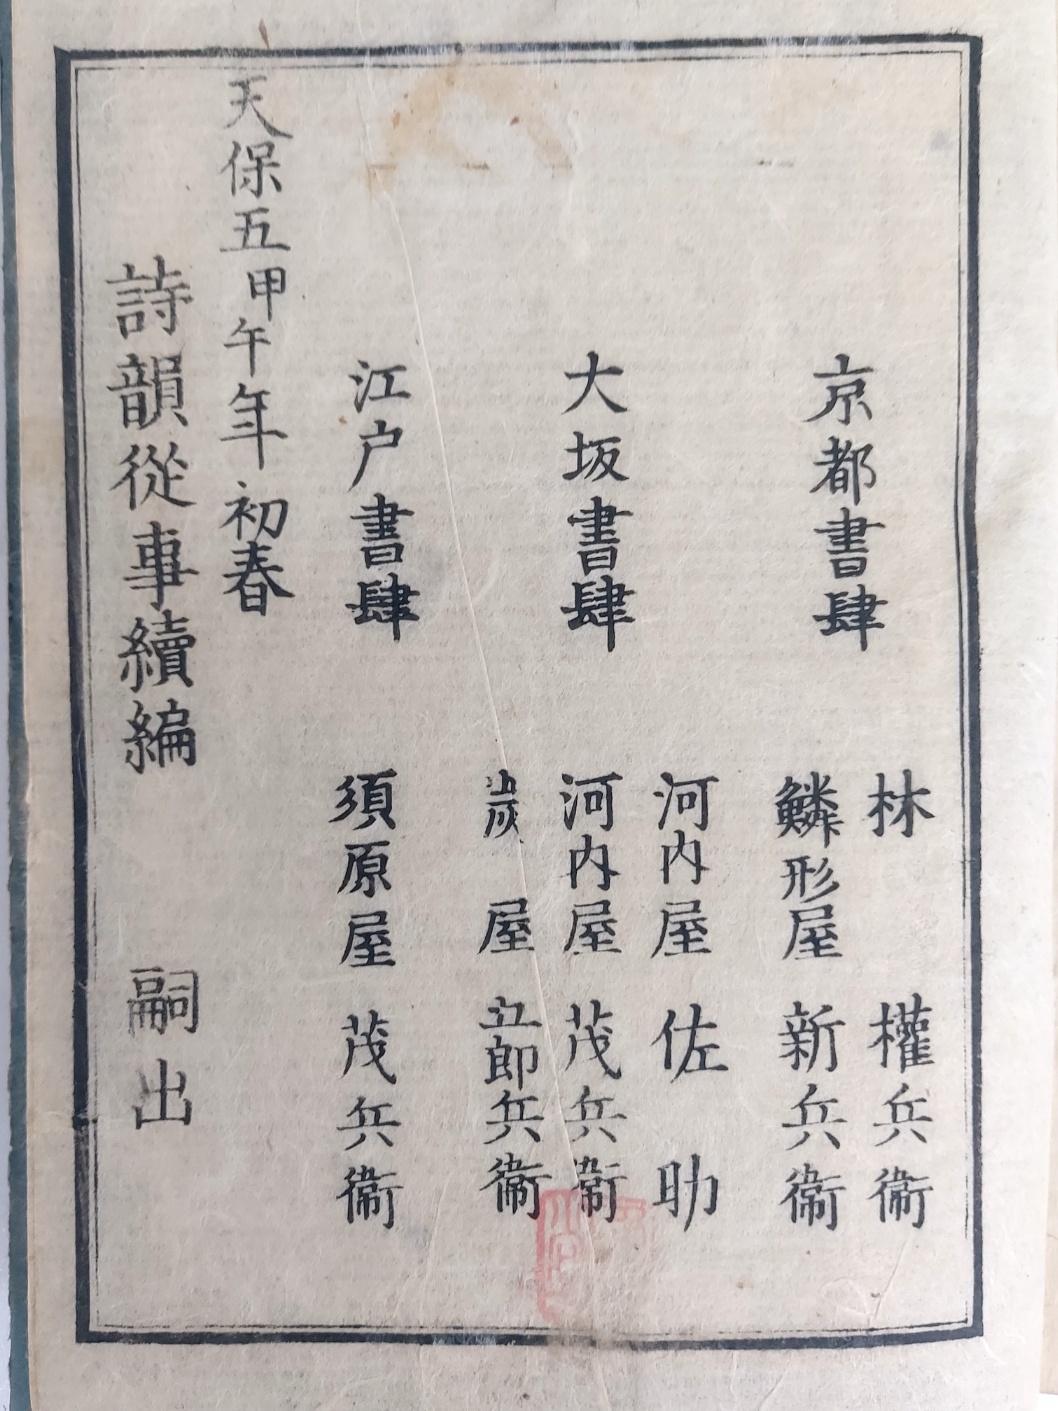 京都書肆
林 權兵衞
鱗形屋 新兵衞
大坂書肆
河内屋 佐助
河内屋 茂兵衞
炭屋 五郎兵衞
江戸書肆
須原屋 茂兵衞
天保五甲午年 初春
詩韻從事續編 嗣出